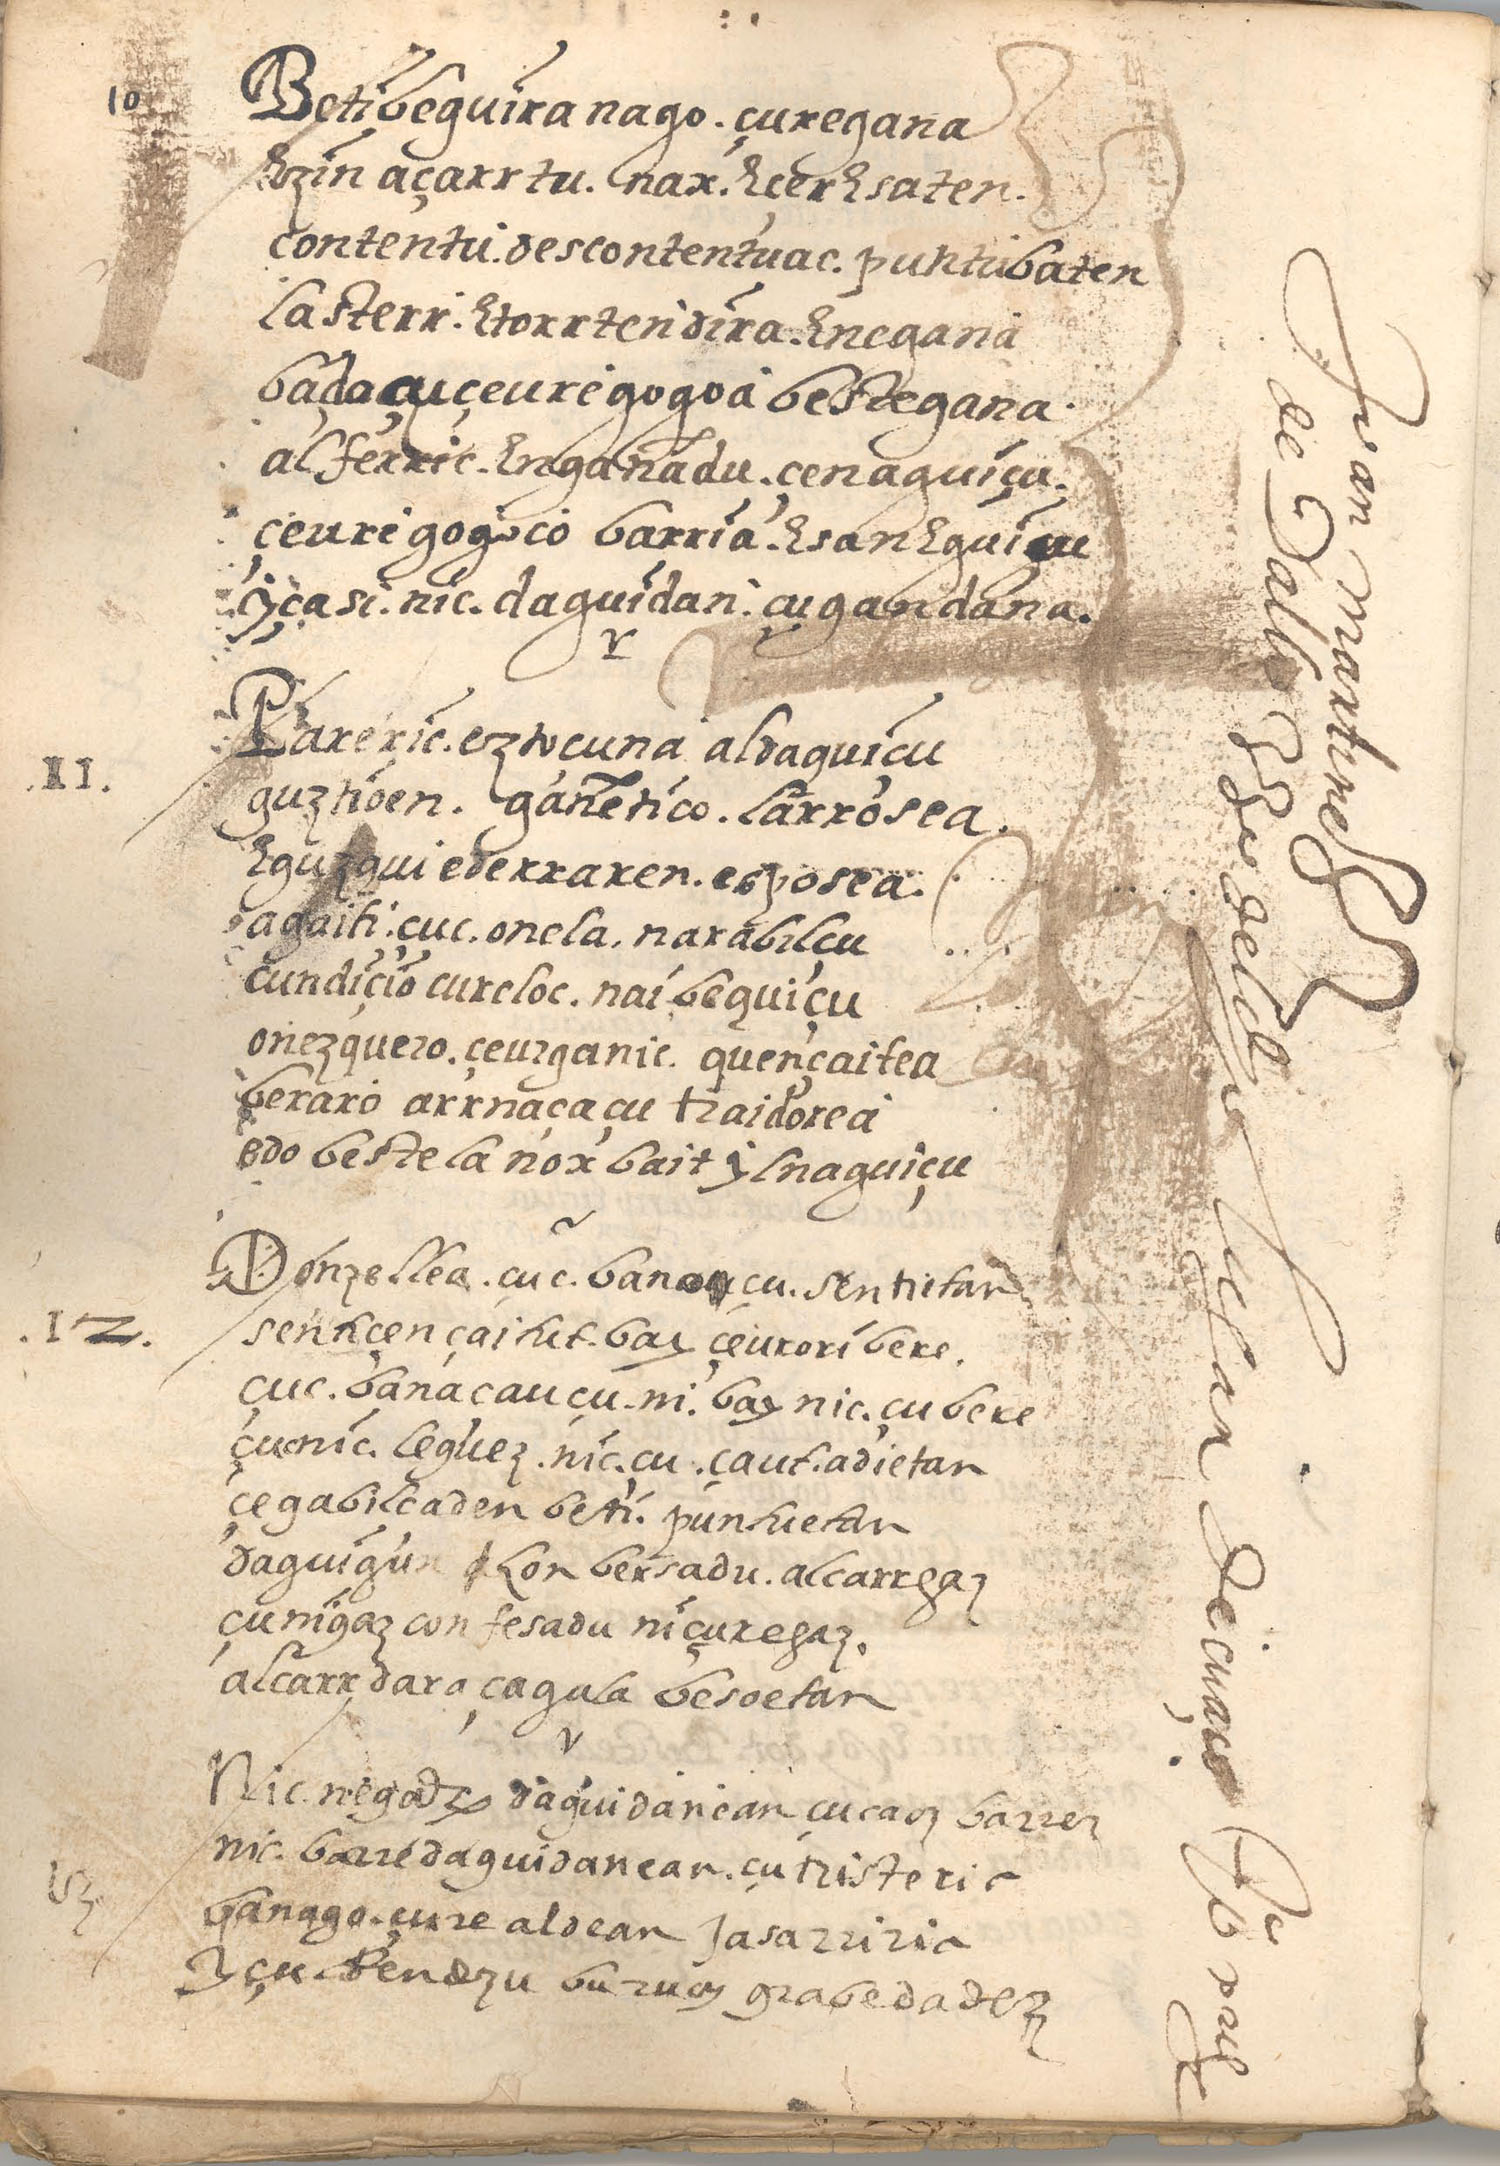 10
Beti beguira nago . çuregana
Ezin açarrtu . nax . Ecer Esaten .
contentu . descontentuac . puntu baten
lasterr . Etorrten dira . Enegana
badaçu çeure gogoa bestegana .
alferric . Engañadu . çenaguiçu .
çeure gogoco barria . Esan Eguiçu
yçasi . nic . daguidan . çugandana .
r
.11.
Pareric . eztocuna aldaguiçu
guztioen . gañetico . larrosea .
Eguzqui ederraren . esposea .
agaiti . çuc . onela . narabilçu
cundiçio cureloc . nai beguiçu
onezquero . çeurganic . quençaitea
beraro arrnaçaçu traidorea
edo bestela nor bait ylnaguiçu
.12.
Donzellea . cuc . banaucu . sentietan
senticen çaitut . bay çeurori bere .
çuc . banacauçu . ni . bay nic . çu bere
çu nic . leguez . nic . çu . çaut . adietan
çegabilcaden beti . puntuetan
daguigun Kon bersadu . alcarregaz
çu nigaz confesadu ni çuregaz .
alcarr dara çagula besoetan
r
13
Nic negarrez daguidanean çucaz barrez
nic . barre daguidanean . çu tristeric
banago . çure aldean Jasarriric
yçu . dendzu buruaz grabedadez
Juan martinez
de